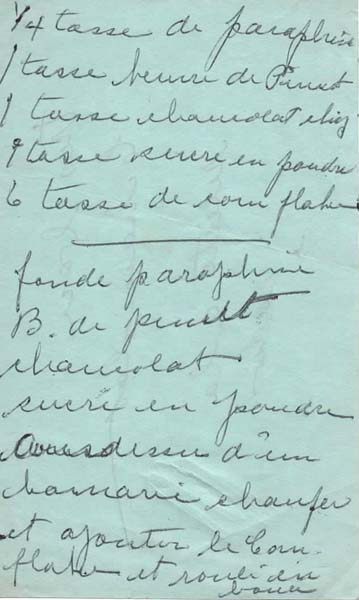 1/4 tasse de paraphine
1 tasse beurre de Pinut
1 tasse chamolat chig
1 tasse sucre en poudre
6 tasse de corn flake
fonde paraphine
B. de pinutt
chamolat
sucre en poudre
dessu d'un
bainmarie chaufer
et ajouter le Corn.
flake et roulé en
boule